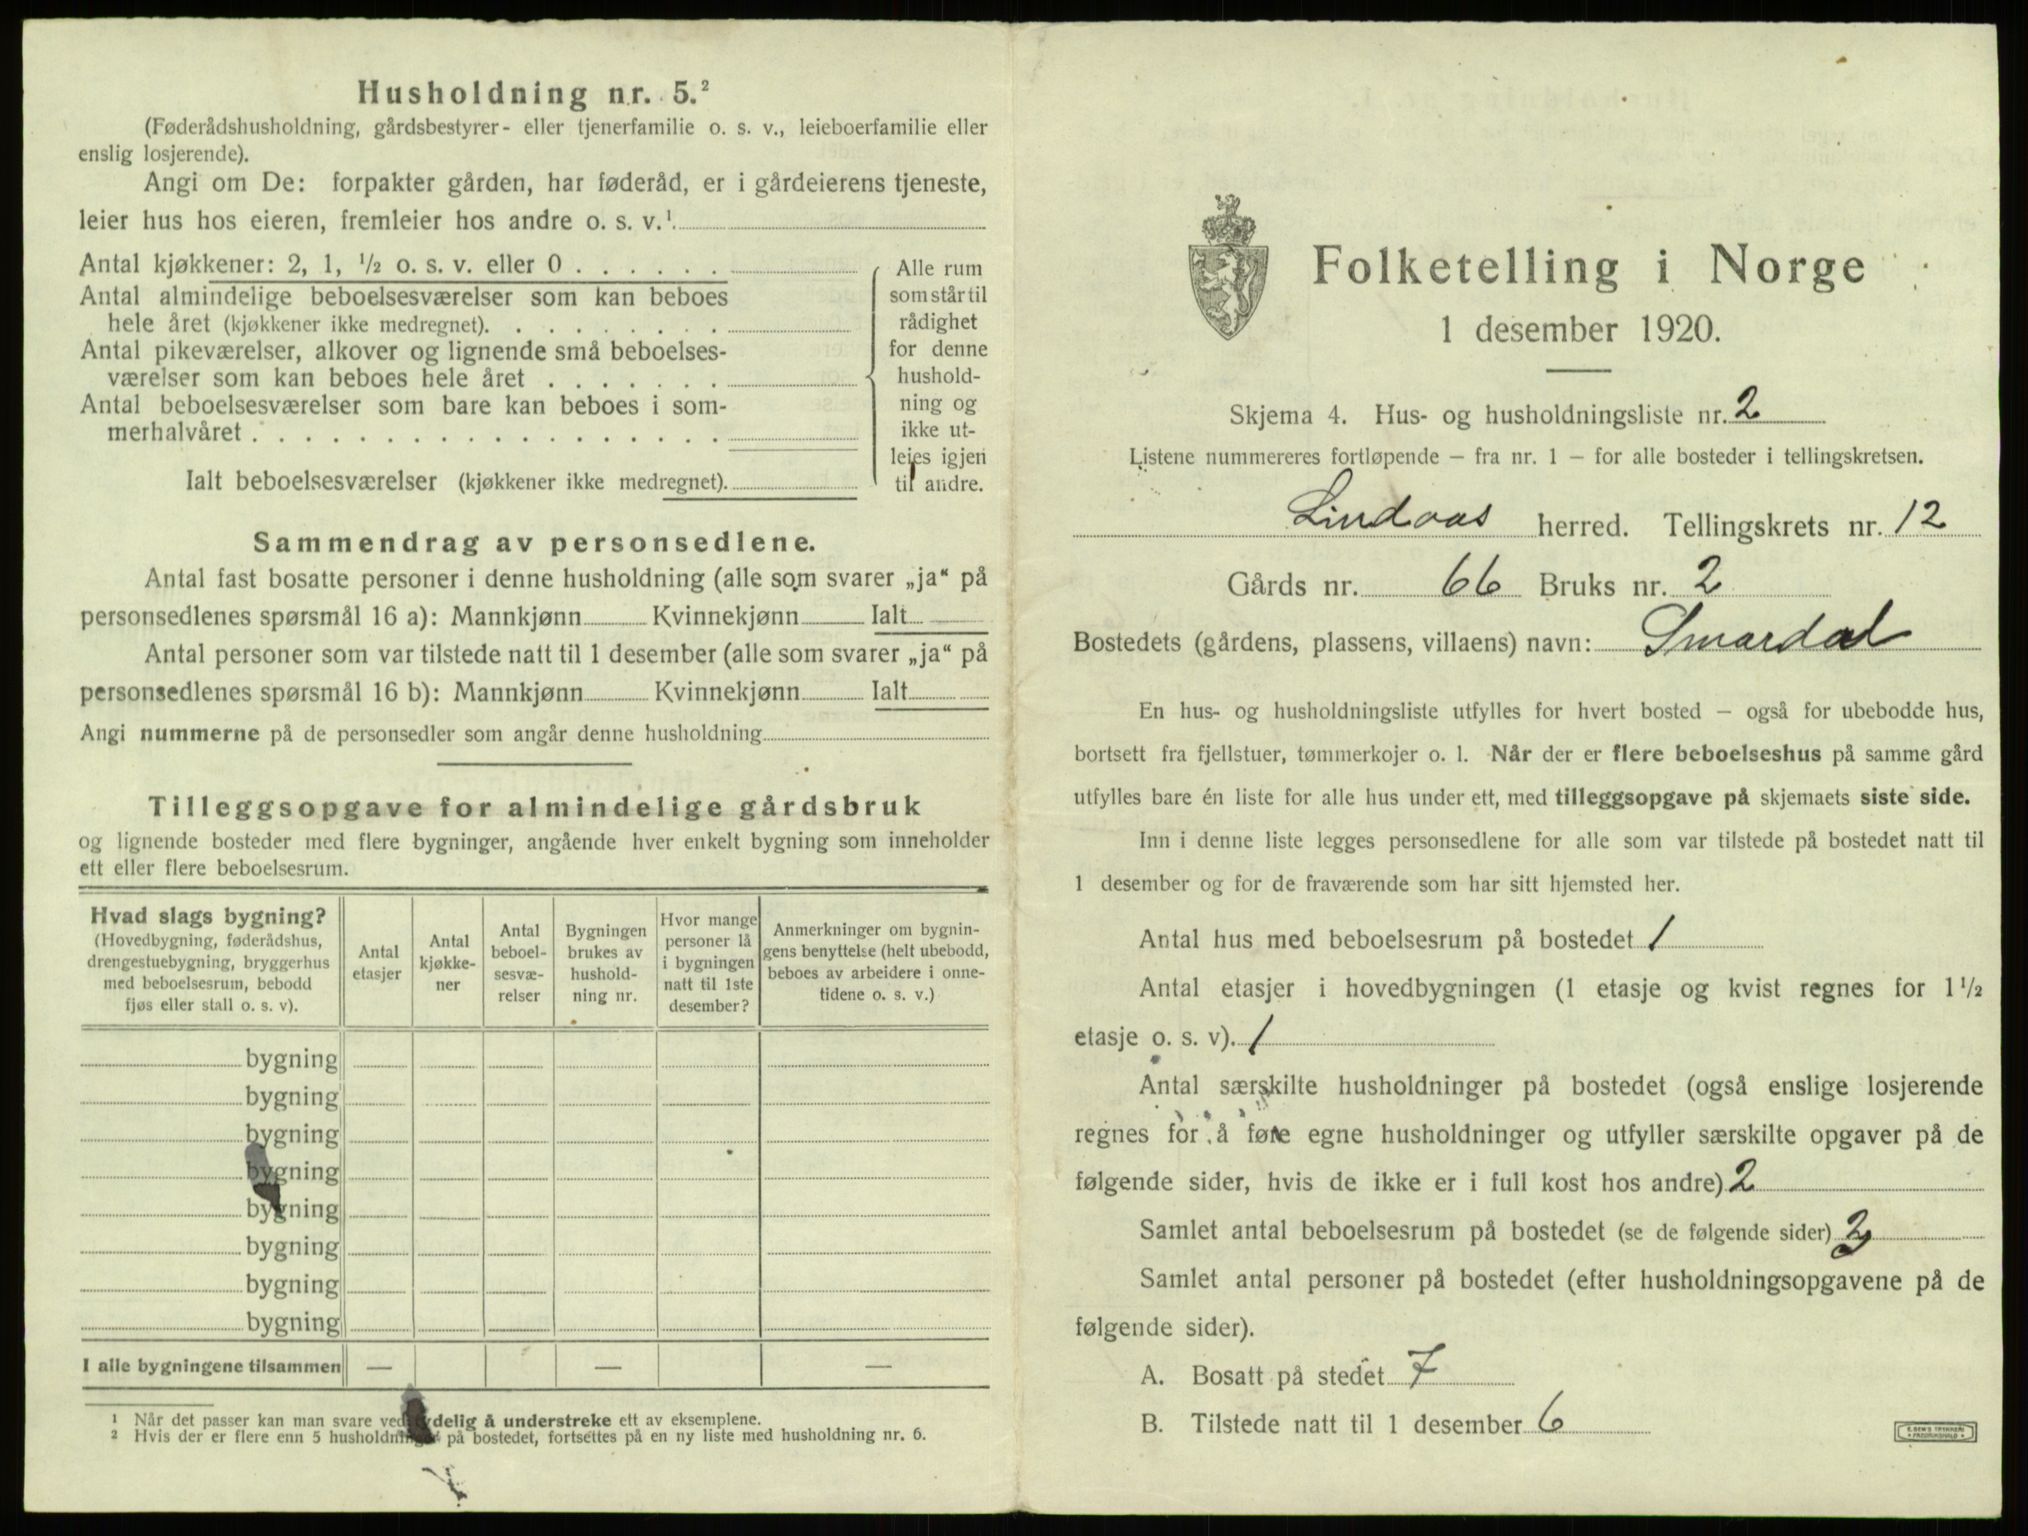 Husholdning nr. 5.²
(Føderådshusholdning, gårdsbestyrer- eller tjenerfamilie o. s. v., leieboerfamilie eller
enslig losjerende).
Angi om De: forpakter gården, har føderåd, er i gårdeierens tjeneste,
leier hus hos eieren, fremleier hos andre o. s. v.¹
Antal kjøkkener: 2, 1, ½ o. s. v. eller 0 . . . . . .
Antal almindelige beboelsesværelser som kan beboes
hele året (kjøkkener ikke medregnet). . . . . . . . .
Antal pikeværelser, alkover og lignende små beboelses-
værelser som kan beboes hele året . . . . . . .
Antal beboelsesværelser som bare kan beboes i som-
merhalvåret . . . . . . . . . . . . . . . . . .
Ialt beboelsesværelser (kjøkkener ikke medregnet).
Alle rum
som står til
rådighet
for denne
hushold-
ning og
ikke ut-
leies igjen
til andre.
Sammendrag av personsedlene.
Antal fast bosatte personer i denne husholdning (alle som svarer „ja“ på
personsedlenes spørsmål 16 a): Mannkjønn Kvinnekjønn Ialt
Antal personer som var tilstede natt til 1 desember (alle som svarer „ja“ på
personsedlenes spørsmål 16 b): Mannkjønn Kvinnekjønn Ialt
Angi nummerne på de personsedler som angår denne husholdning
Tilleggsopgave for almindelige gårdsbruk
og lignende bosteder med flere bygninger, angående hver enkelt bygning som inneholder
ett eller flere beboelsesrum.
Hvad slags bygning?
(Hovedbygning, føderådshus,
drengestuebygning, bryggerhus
med beboelsesrum, bebodd
fjøs eller stall o. s. v).
Antal
etasjer
Antal
kjøkke-
ner
Antal
beboel-
sesvæ-
relser
Bygningen
brukes av
hushold-
ning nr.
Hvor mange
personer lå
i bygningen
natt til 1ste
desember?
Anmerkninger om bygnin-
gens benyttelse (helt ubebodd,
beboes av arbeidere i onne-
tidene o. s. v.)
bygning
bygning
bygning
bygning
bygning
bygning
bygning
bygning
I alle bygningene tilsammen — — —
¹ Når det passer kan man svare ved tydelig å understreke ett av eksemplene.
² Hvis der er flere enn 5 husholdninger på bostedet, fortsettes på en ny liste med husholdning nr. 6.
Folketelling i Norge
1 desember 1920.
Skjema 4. Hus- og husholdningsliste nr. 2
Listene nummereres fortløpende – fra nr. 1 – for alle bosteder i tellingskretsen.
Lindaas herred. Tellingskrets nr. 12
Gårds nr. 66 Bruks nr. 2
Bostedets (gårdens, plassens, villaens) navn: Smørdal
En hus- og husholdningsliste utfylles for hvert bosted – også for ubebodde hus,
bortsett fra fjellstuer, tømmerkojer o. l. Når der er flere beboelseshus på samme gård
utfylles bare én liste for alle hus under ett, med tilleggsopgave på skjemaets siste side.
Inn i denne liste legges personsedlene for alle som var tilstede på bostedet natt til
1 desember og for de fraværende som har sitt hjemsted her.
Antal hus med beboelsesrum på bostedet 1
Antal etasjer i hovedbygningen (1 etasje og kvist regnes for 1 ½
etasje o. s. v). 1
Antal særskilte husholdninger på bostedet (også enslige losjerende
regnes for å føre egne husholdninger og utfyller særskilte opgaver på de
følgende sider, hvis de ikke er i full kost hos andre) 2
Samlet antal beboelsesrum på bostedet (se de følgende sider)
Samlet antal personer på bostedet (efter husholdningsopgavene på de
følgende sider).
A. Bosatt på stedet 7
B. Tilstede natt til 1 desember 6